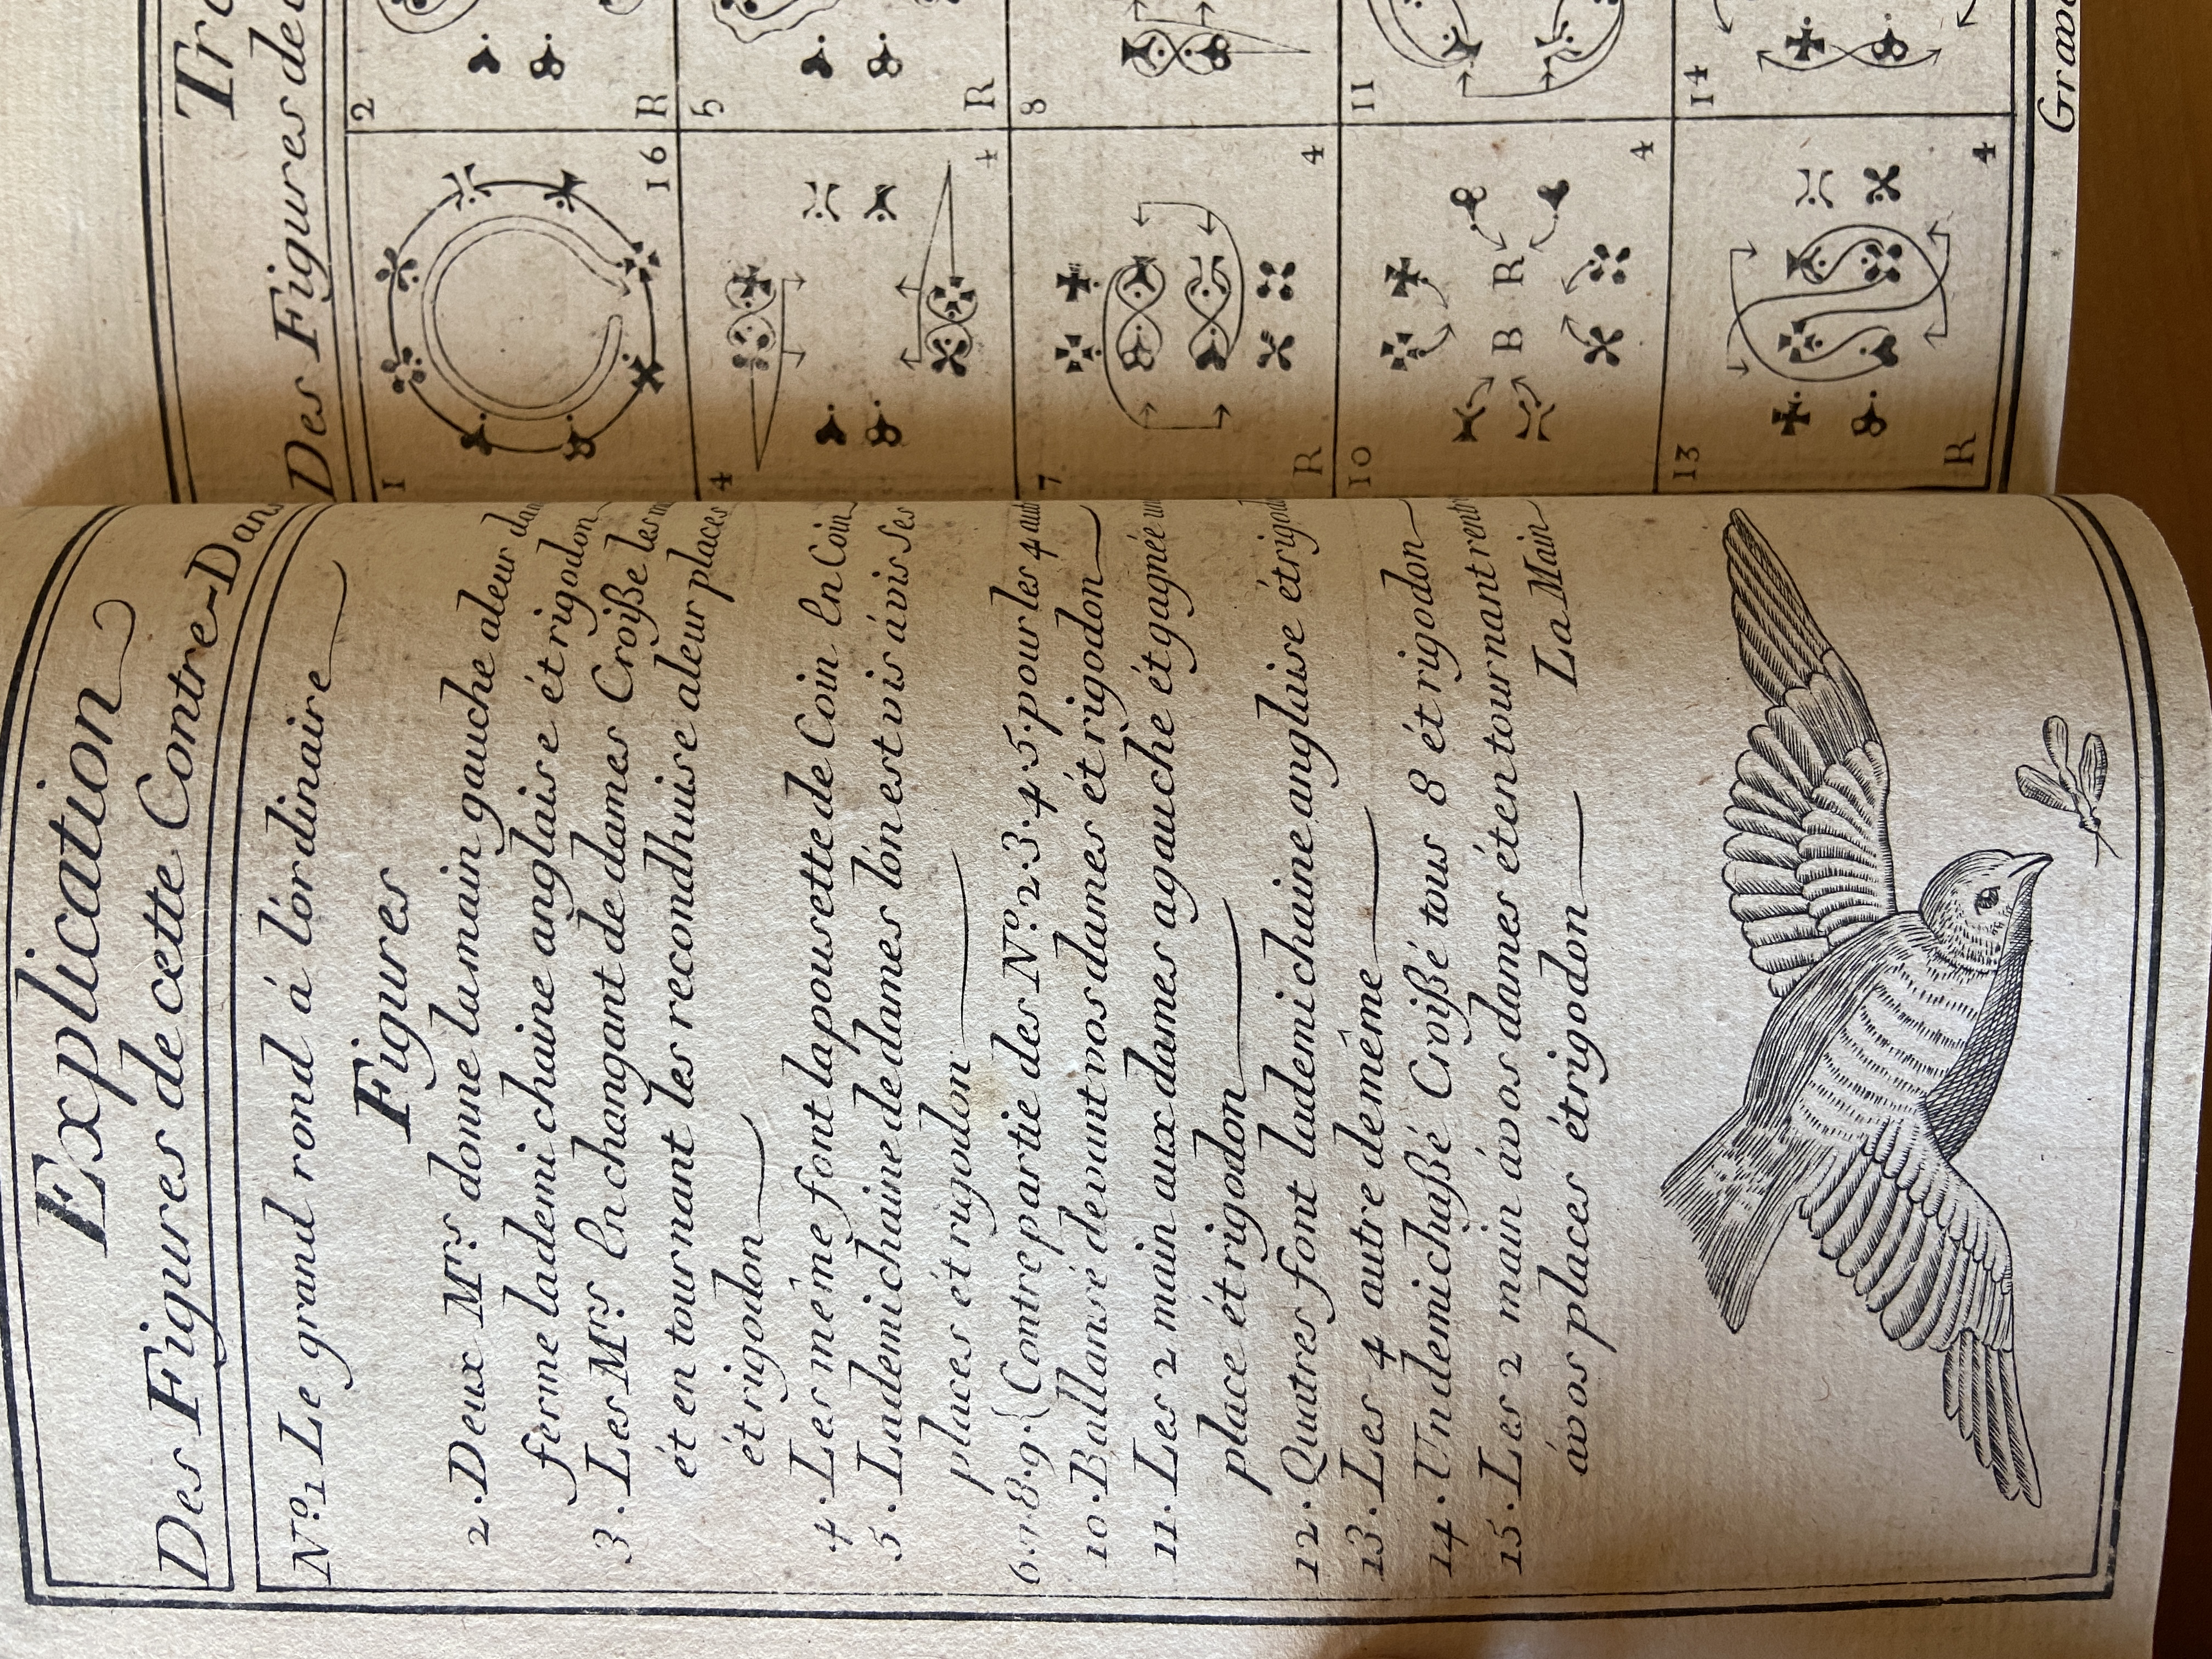 Explication
Des Figures de cette Contre-Dans
Nº. 1 Le grand rond á l'ordinaire
Figures
2. Deux Mrs donne la main gauche aleur dam
ferme lademi chaine anglaise ét rigodon
3. Les Mrs En changant de dames Croiße les m
ét en tournant les recondhuise aleur places
ét rigodon
4. Les même font la pousette de Coin En Coin
5. Lademi chaine de dames lon est vis ávis Ses
places ét rigodon
6.7.8.9.{Contre partie des Nº. 2.3.4.5. pour les 4 aut
10. Ballansé devant vos dames ét rigodon
11. Les 2 main aux dames agauche ét gagnée un
place ét rigodon
12. Quatres font lademi chaine anglaise étrigod
13. Les 4 autre demême
14. Un demi chaßé Croißé tous 8 ét rigodon
15. Les 2 main ávos dames éten tournant rentr
ávos places étrigodon La Main
Tra
Des Figures de c
1 16 2 R
4 4 5 R
7 R 4 8
10 B R 4 11
13 R 4 14
Grav